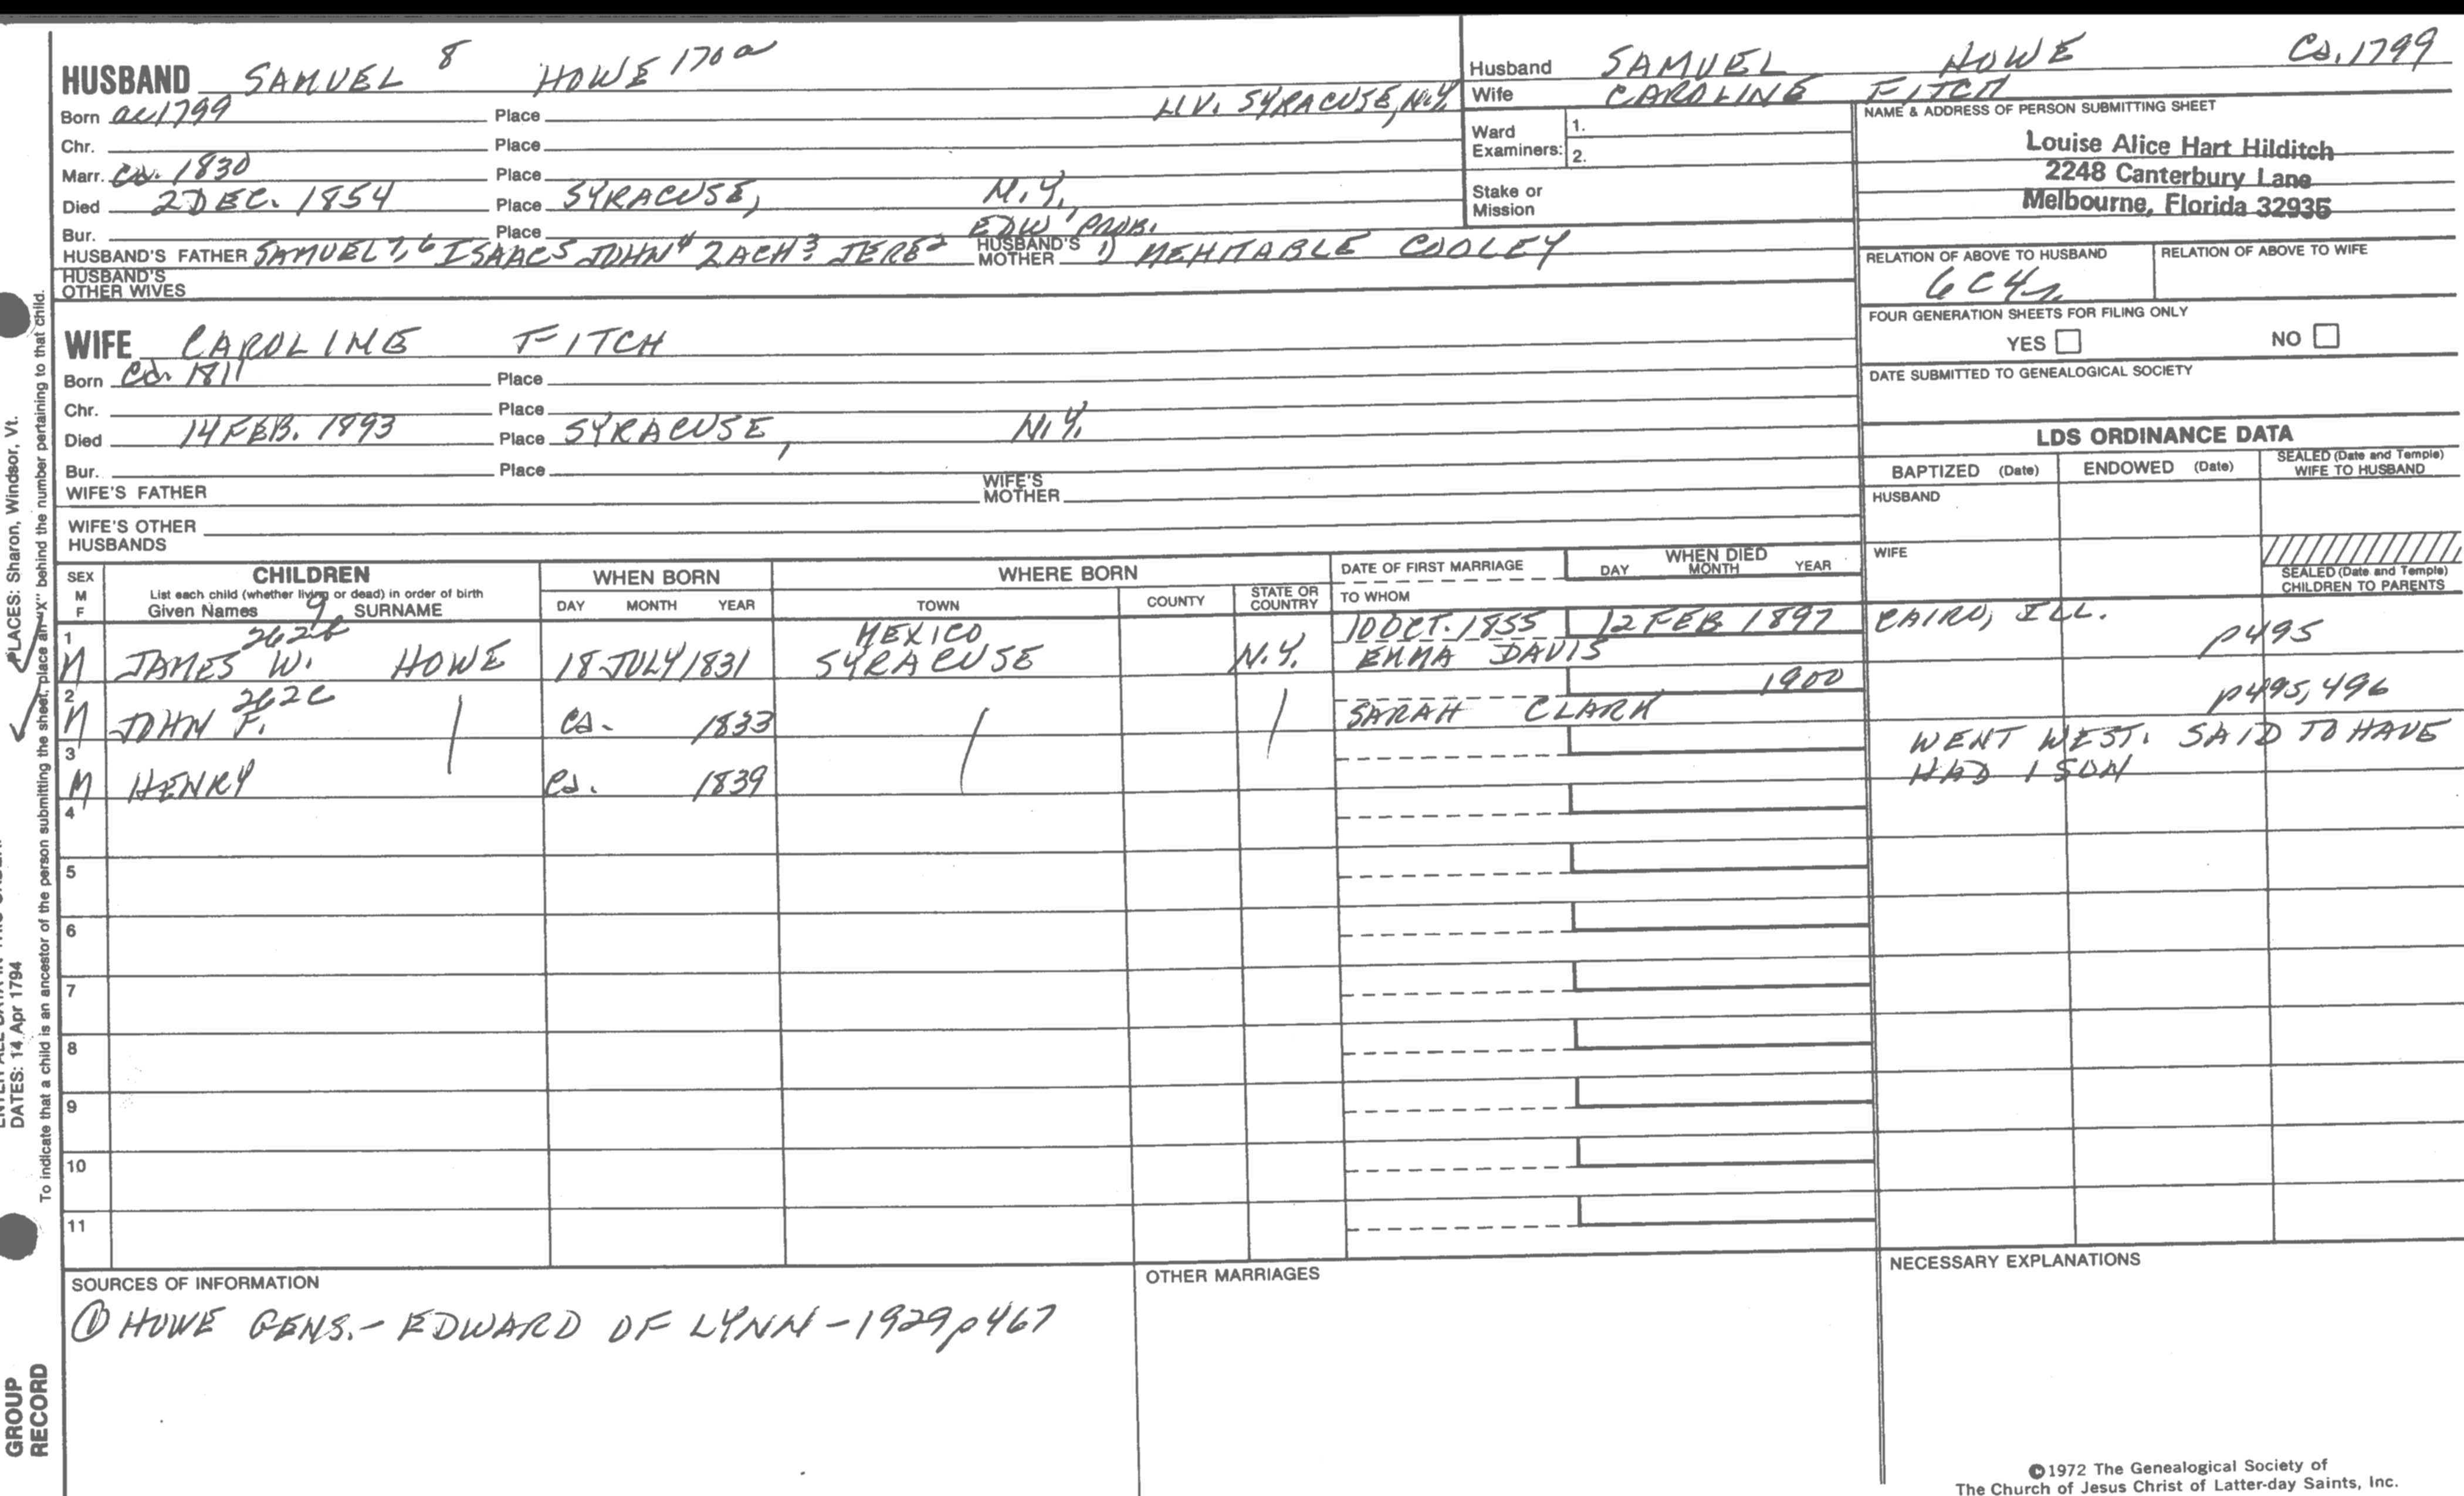 HUSBAND SAMUEL 8 HOWE 170a
Born ca 1799 Place LIV. SYRACUSE, N.Y.
Chr. Place
Marr. Ca. 1830 Place
Died 2 DEC. 1854 Place SYRACUSE, N.Y.
Bur. Place
HUSBAND'S FATHER SAMUEL 7, 6 ISAAC5 JOHN4 ZACH3 JERE2 EDW1 PROB. HUSBAND'S MOTHER 1) MEHITABLE COOLEY
HUSBAND'S OTHER WIVES
WIFE CAROLINE FITCH
Born Ca. 1811 Place
Chr. Place
Died 14 FEB. 1893 Place SYRACUSE, N.Y.
Bur. Place
WIFE'S FATHER WIFE'S MOTHER
WIFE'S OTHER HUSBANDS
Husband SAMUEL HOWE Ca. 1799
Wife CAROLINE FITCH
Ward Examiners: 1.
2.
Stake or Mission
NAME & ADDRESS OF PERSON SUBMITTING SHEET
Louise Alice Hart Hilditch
2248 Canterbury Lane
Melbourne, Florida 32935
RELATION OF ABOVE TO HUSBAND RELATION OF ABOVE TO WIFE
6C4r
FOUR GENERATION SHEETS FOR FILING ONLY
YES NO
DATE SUBMITTED TO GENEALOGICAL SOCIETY
LDS ORDINANCE DATA
BAPTIZED (Date) ENDOWED (Date) SEALED (Date and Temple) WIFE TO HUSBAND
HUSBAND
WIFE
SEALED (Date and Temple) CHILDREN TO PARENTS
SEX M F
CHILDREN
List each child (whether living or dead) in order of birth
Given Names 9 SURNAME
WHEN BORN
DAY MONTH YEAR
WHERE BORN
TOWN COUNTY STATE OR COUNTRY
DATE OF FIRST MARRIAGE
TO WHOM
WHEN DIED
DAY MONTH YEAR
1 262b MEXICO 10 OCT. 1855 12 FEB 1897 CAIRO, ILL. p495
M JAMES W. HOWE 18 JULY 1831 SYRACUSE N.Y. EMMA DAVIS
2 262c 1900 p495, 496
M JOHN F. ca. 1833 SARAH CLARK
3 WENT WEST. SAID TO HAVE
M HENRY ca. 1839 HAD 1 SON
4
5
6
7
8
9
10
11
SOURCES OF INFORMATION
① HOWE GENS. - EDWARD OF LYNN - 1929 p467
OTHER MARRIAGES
NECESSARY EXPLANATIONS
©1972 The Genealogical Society of
The Church of Jesus Christ of Latter-day Saints, Inc.
PLACES: Sharon, Windsor, Vt.
DATES: 14 Apr 1794
To indicate that a child is an ancestor of the person submitting the sheet, place an "X" behind the number pertaining to that child.
GROUP
RECORD